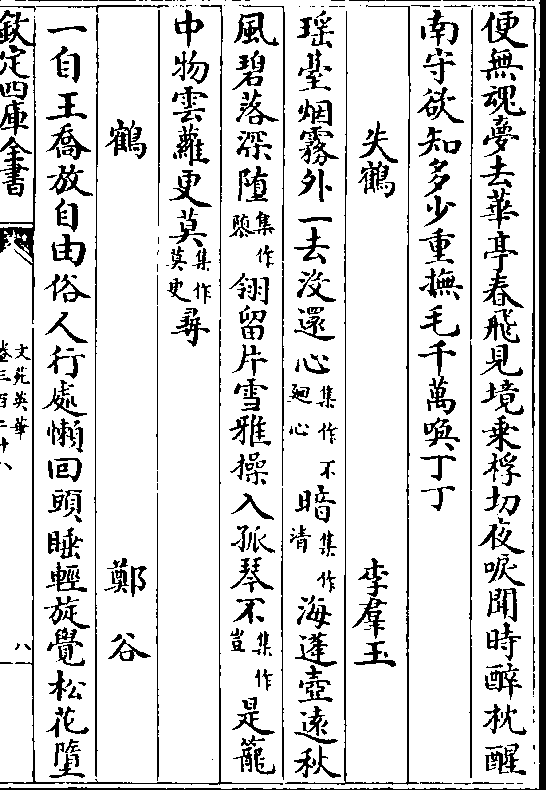 便無魂夢去華亭春飛見境乗桴切夜唳聞時醉枕醒
南守欲知多少重撫毛千萬喚丁丁
失鶴 李羣玉
瑶臺烟霧外一去没還心集作不廻心暗集作清海蓬壺遠秋
風碧落深堕集作墜翎留片雪雅操入孤琴不集作豈是籠
中物雲蘿更莫集作莫更尋
鶴 鄭谷
一自王喬放自由俗人行處懶回頭睡輕旋覺松花墮
欽定四庫全書
文苑英華
卷三百二十八
八